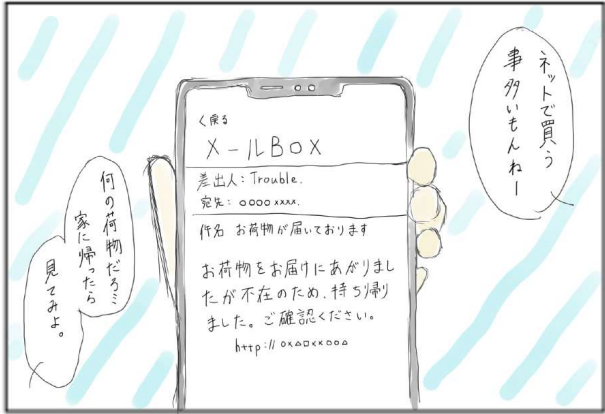 ネットで買う
事多いもんねー
く戻る
メールBOX
差出人：Trouble.
宛先：○○○○xxxx.
件名 お荷物が届いております
お荷物をお届けにあがりまし
たが不在のため、持ち帰り
ました。ご確認ください。
http://○×△□××○○△
何の荷物だろ…
家に帰ったら
見てみよ。